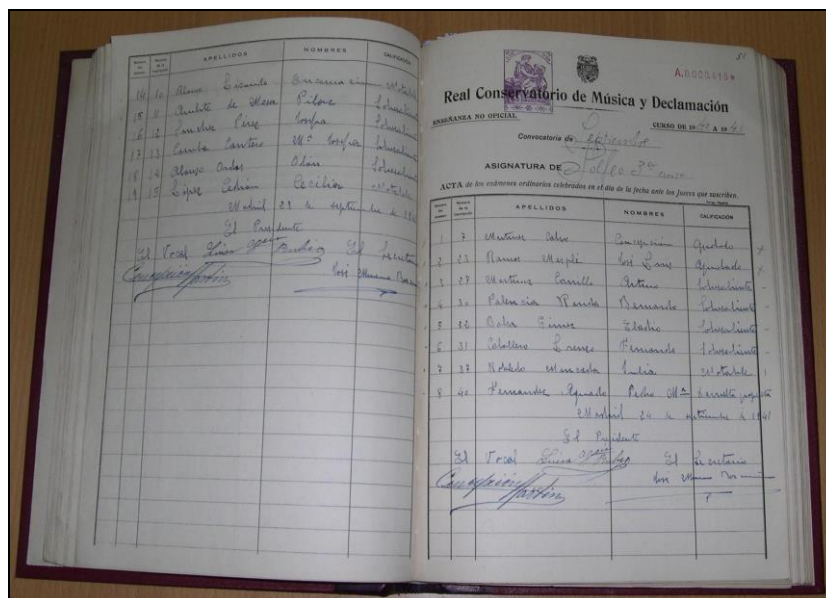 APELLIDOS NOMBRES CALIFICACIÓN
14 10 Alonso Encarnación Notable
15 8 de Mesa Pilar Sobresaliente
16 12 Sánchez Pérez Josefa Sobresaliente
17 13 Mª Josefa Sobresaliente
18 14 Alonso Odón Sobresaliente
19 15 López Cedrún Cecilia Notable
Madrid 29 de septiembre de 1941
El Presidente
El Vocal El Secretario
Concepción Martín José
A.0000415*
Real Conservatorio de Música y Declamación
ENSEÑANZA NO OFICIAL CURSO DE 1940 A 1941
Convocatoria de Septiembre
ASIGNATURA DE Solfeo 3er curso
ACTA de los exámenes ordinarios celebrados en el día de la fecha ante los Jueces que suscriben.
APELLIDOS NOMBRES CALIFICACIÓN
1 7 Martínez Calvo Concepción Aprobado
2 23 Ramos José Luis Aprobado
3 27 Martínez Carrillo Arturo Sobresaliente
4 30 Palencia Bernardo Sobresaliente
5 22 Giner Eladio Sobresaliente
6 31 Caballero Lorenzo Fernando Sobresaliente
7 37 Robledo Moncada Julia Notable
8 40 Fernández Aguado Pedro Mª
Madrid 29 de septiembre de 1941
El Presidente
El Vocal El Secretario
Concepción Martín José